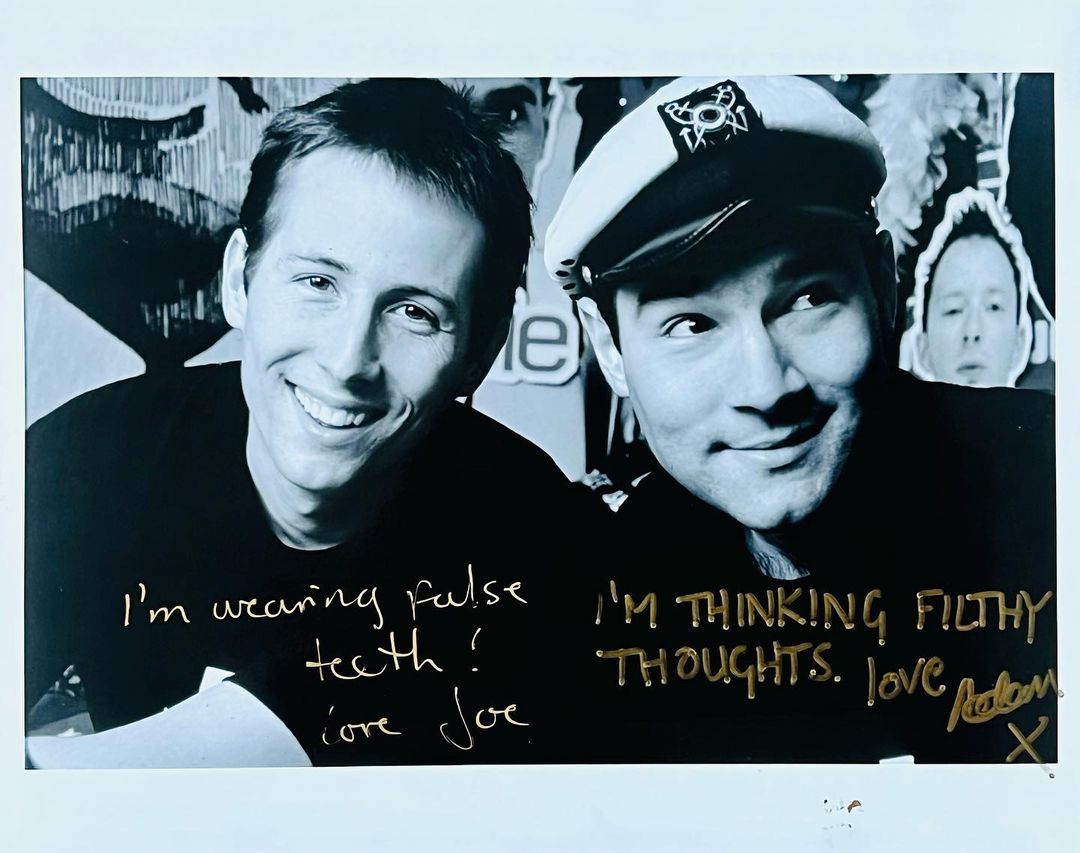 ie
I'm wearing false
teeth!
love Joe
I'M THINKING FILTHY
THOUGHTS. love Adam
X